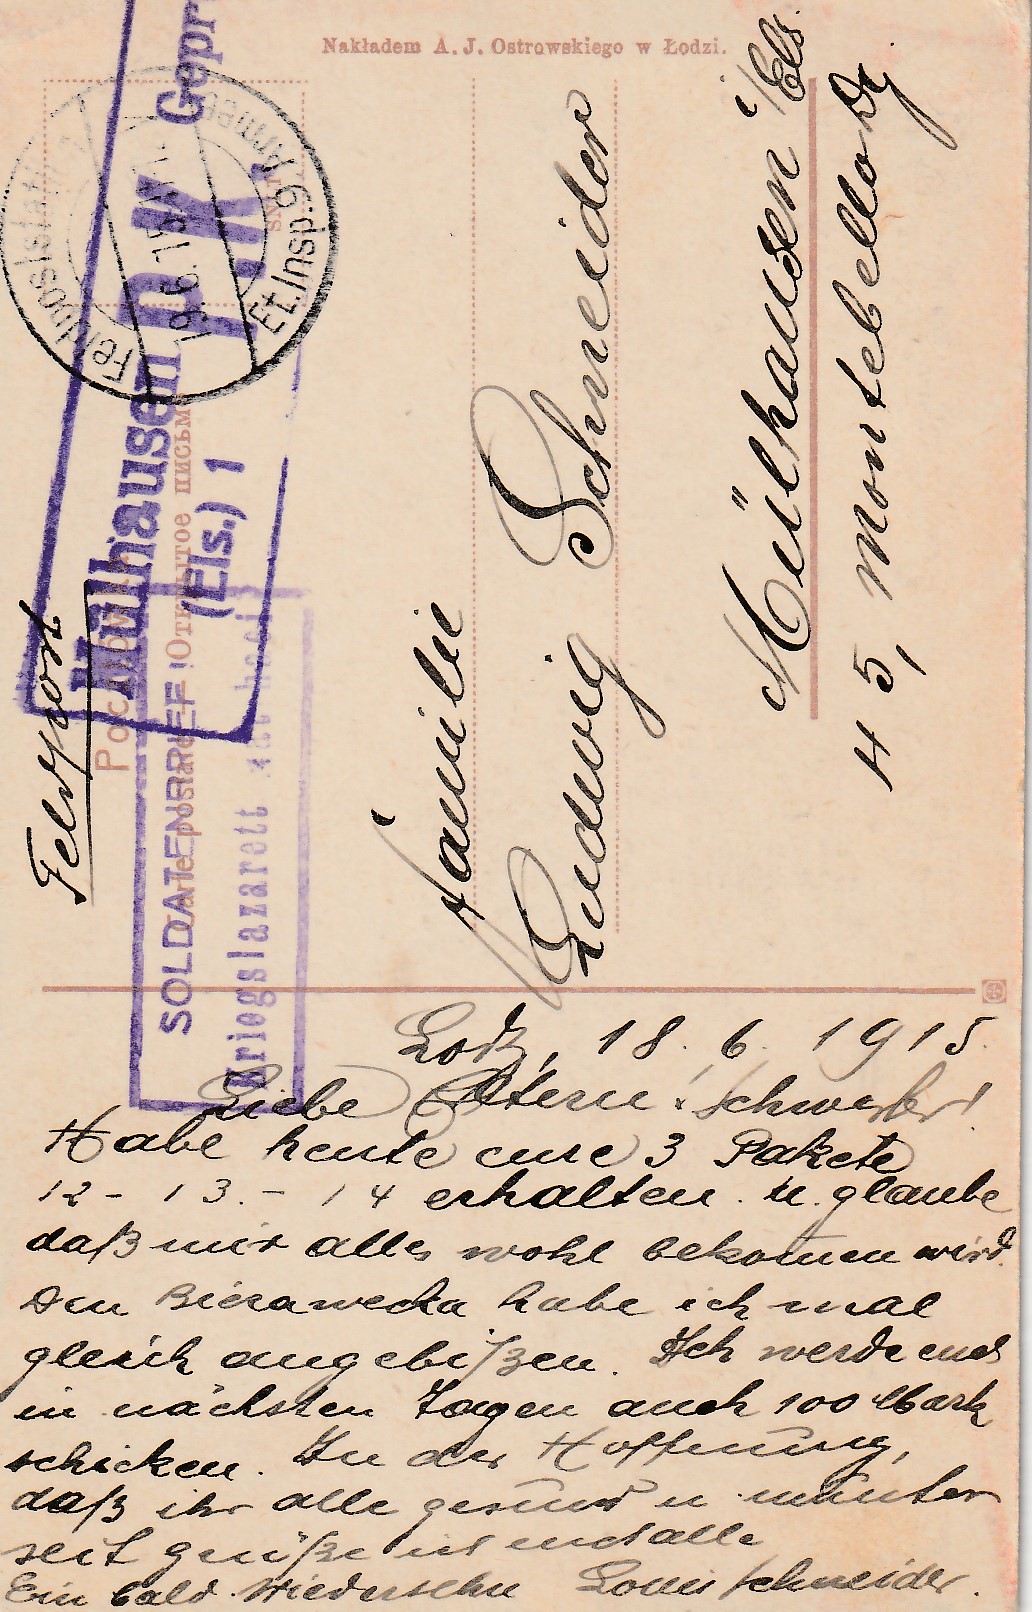 Nakładem A. J. Ostrowskiego w Łodzi.
Feldpost
Открытое письмо
Carte postale
Mülhausen
(Els.) 1
P.K.
Gepr
Feldpoststation
19.6.15
Et. Insp. 9 Armee
SOLDATENBRIEF
Kriegslazarett
Familie
Ludwig Schneider
Mülhausen i/Els.
45, Montebello
Lodz, 18. 6. 1915.
Liebe Eltern u. Schwester!
Habe heute eure 3 Pakete
12 - 13. - 14 erhalten u. glaube
daß mir alles wohl bekomen wird.
Den Bierawecka habe ich mal
gleich angebißen. Ich werde euch
in nächsten Tagen auch 100 Mark
schicken. In der Hoffnung,
daß ihr alle gesund u munter
seit grüße ich euch alle
Ein bald. Wiedersehn Louis Schneider.